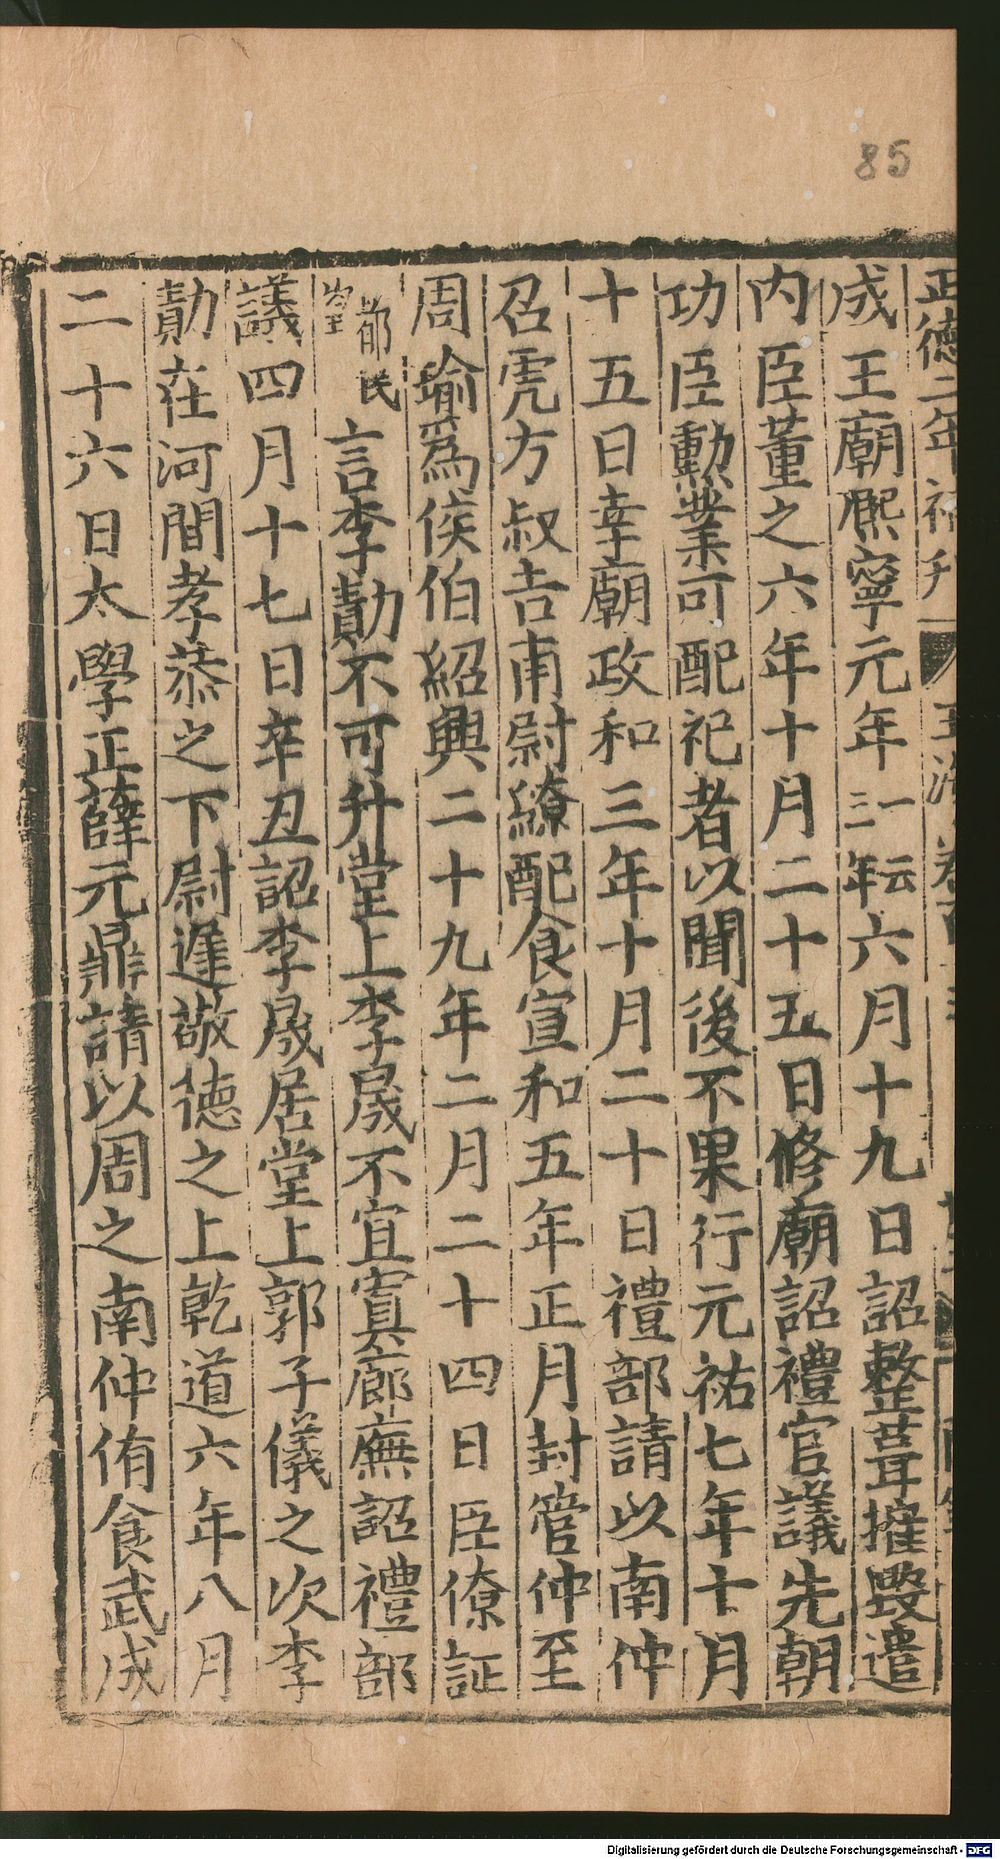 85
正德二年補刋 玉海卷百
成王廟熈寧元年一云三年六月十九日詔整葺摧毀遣
内臣董之六年十月二十五日修廟詔禮官議先朝
功臣勲業可配祀者以聞後不果行元祐七年十月
十五日幸廟政和三年十月二十日禮部請以南仲
召虎方叔吉甫尉繚配食宣和五年正月封管仲至
周瑜爲侯伯紹興二十九年二月二十四日臣僚証
都民望言李勣不可升堂上李晟不宜寘廊廡詔禮部
議四月十七日辛丑詔李晟居堂上郭子儀之次李
勣在河間孝恭之下尉遲敬德之上乾道六年八月
二十六日太學正薛元鼎請以周之南仲侑食武成
Digitalisierung gefördert durch die Deutsche Forschungsgemeinschaft - DFG